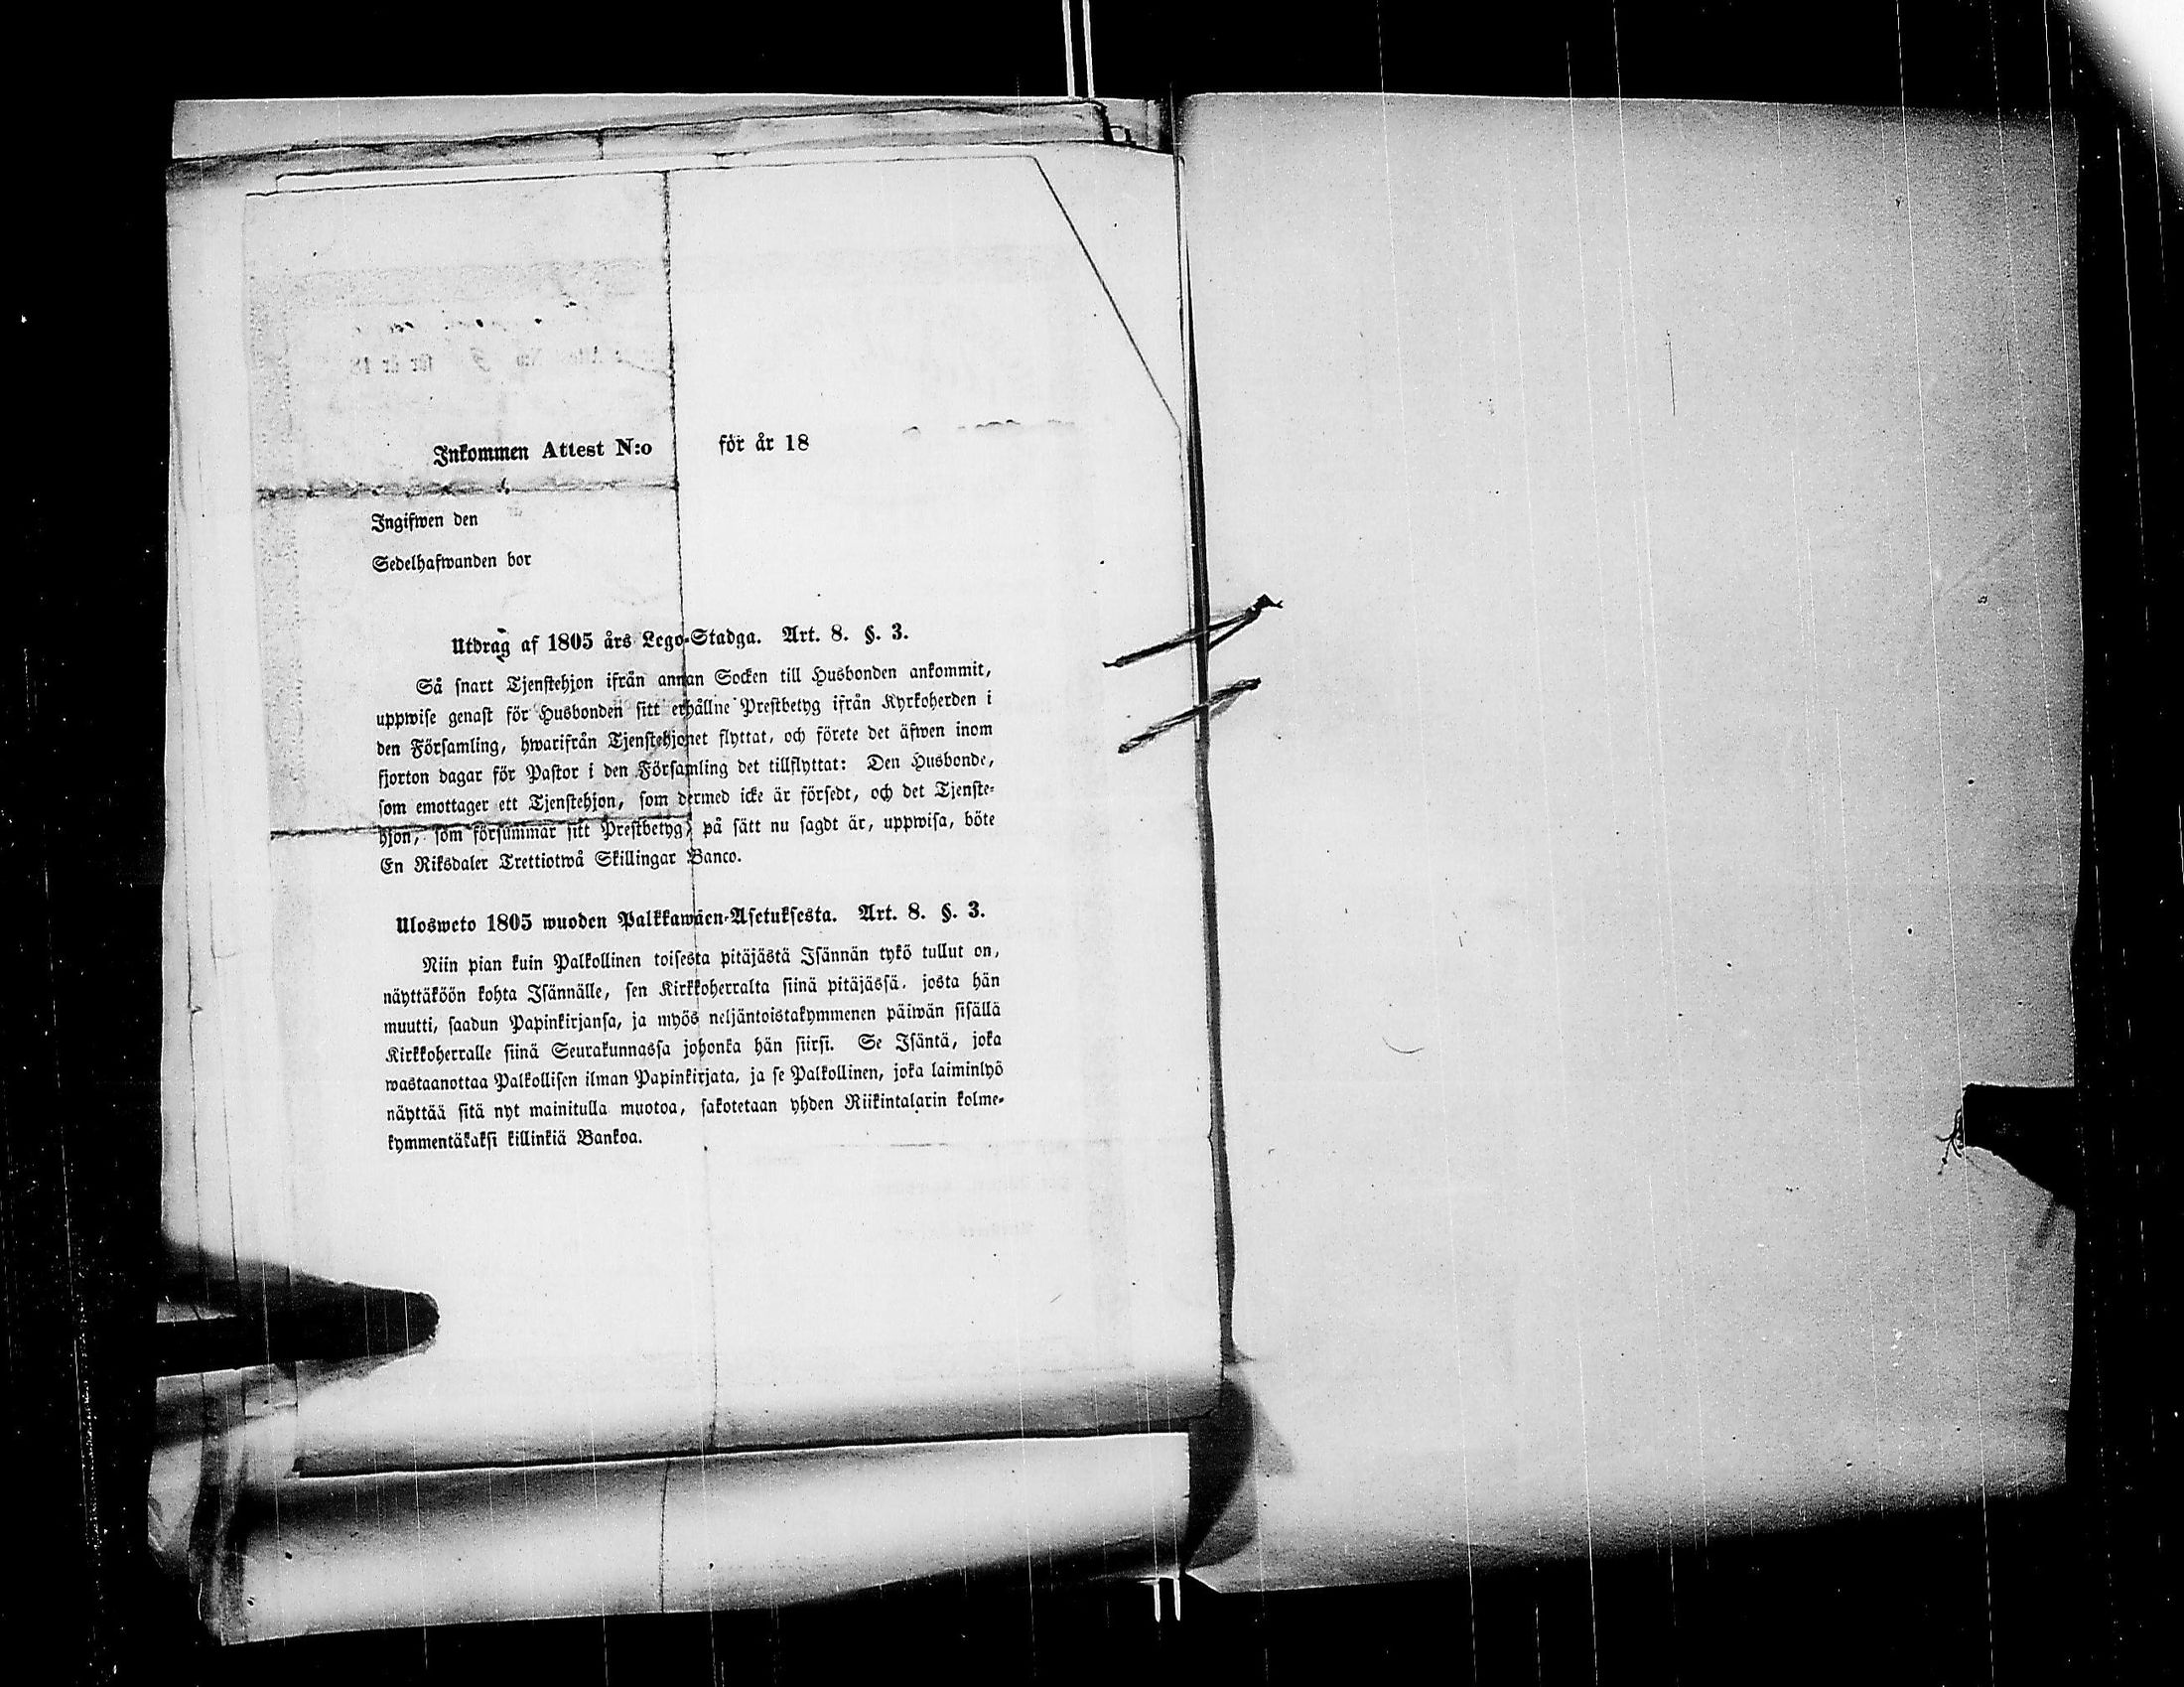 Inkommen Attest N:o för år 18
Ingifwen den
Sedelhafwanden bor
Utdrag af 1805 års Lego-Stadga. Art. 8. §. 3.
Så snart Tjenstehjon ifrån annan Socken till Husbonden ankommit,
uppwise genast för Husbonden sitt erhållne Prestbetyg ifrån Kyrkoherden i
den Församling, hwarifrån Tjenstehjonet flyttat, och förete det äfwen inom
fjorton dagar för Pastor i den Församling det tillflyttat: Den Husbonde,
som emottager ett Tjenstehjon, som dermed icke är försedt, och det Tjenste-
hjon, som försummar sitt Prestbetyg, på sätt nu sagdt är, uppwisa, böte
En Riksdaler Trettiotwå Skillingar Banco.
Ulosweto 1805 wuoden Palkkawäen-Asetuksesta. Art. 8. §. 3.
Niin pian kuin Palkollinen toisesta pitäjästä Isännän tykö tullut on,
näyttäköön kohta Isännälle, sen Kirkkoherralta siinä pitäjässä, josta hän
muutti, saadun Papinkirjansa, ja myös neljäntoistakymmenen päiwän sisällä
Kirkkoherralle siinä Seurakunnassa johonka hän siirsi. Se Isäntä, joka
wastaanottaa Palkollisen ilman Papinkirjata, ja se Palkollinen, joka laiminlyö
näyttää sitä nyt mainitulla muotoa, sakotetaan yhden Riikintalarin kolme-
kymmentäkaksi killinkiä Bankoa.